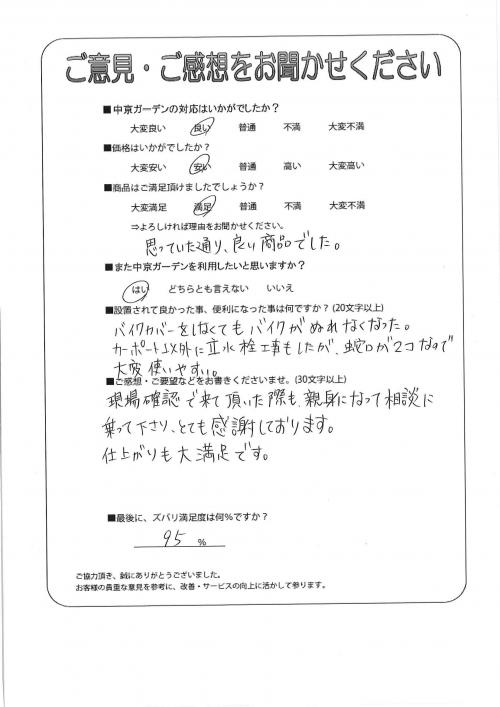 ご意見・ご感想をお聞かせください
■中京ガーデンの対応はいかがでしたか？
大変良い 良い 普通 不満 大変不満
■価格はいかがでしたか？
大変安い 安い 普通 高い 大変高い
■商品はご満足頂けましたでしょうか？
大変満足 満足 普通 不満 大変不満
⇒よろしければ理由をお聞かせください。
思っていた通り、良い商品でした。
■また中京ガーデンを利用したいと思いますか？
はい どちらとも言えない いいえ
■設置されて良かった事、便利になった事は何ですか？(20文字以上)
バイクカバーをしなくてもバイクがぬれなくなった。
カーポート以外に立水栓工事もしたが、蛇口が2コなので
大変使いやすい。
■ご感想・ご要望などをお書きくださいませ。(30文字以上)
現場確認で来て頂いた際も、親身になって相談に
乗って下さり、とても感謝しております。
仕上がりも大満足です。
■最後に、ズバリ満足度は何％ですか？
95 %
ご協力頂き、誠にありがとうございました。
お客様の貴重な意見を参考に、改善・サービスの向上に活かして参ります。